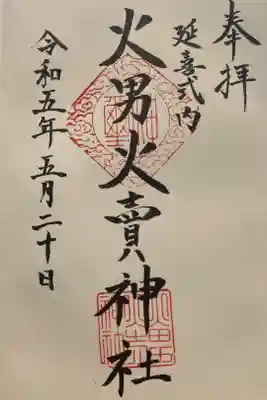 奉拝
延喜式内
火男火賣神社
令和五年五月二十日